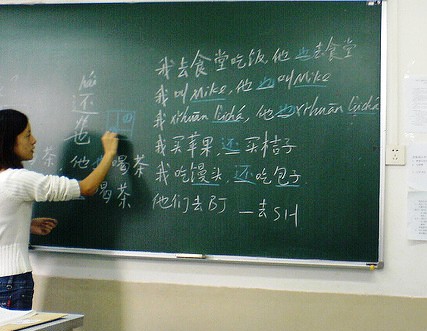 hái
还
也
茶,他也喝茶
喝茶
我去食堂吃饭,他也去食堂
我叫Mike,他也叫Mike
我xǐhuān lǜchá,他也xǐhuān lǜchá
我买苹果,还买桔子
我吃馒头,还吃包子
他们去BJ 一去SH